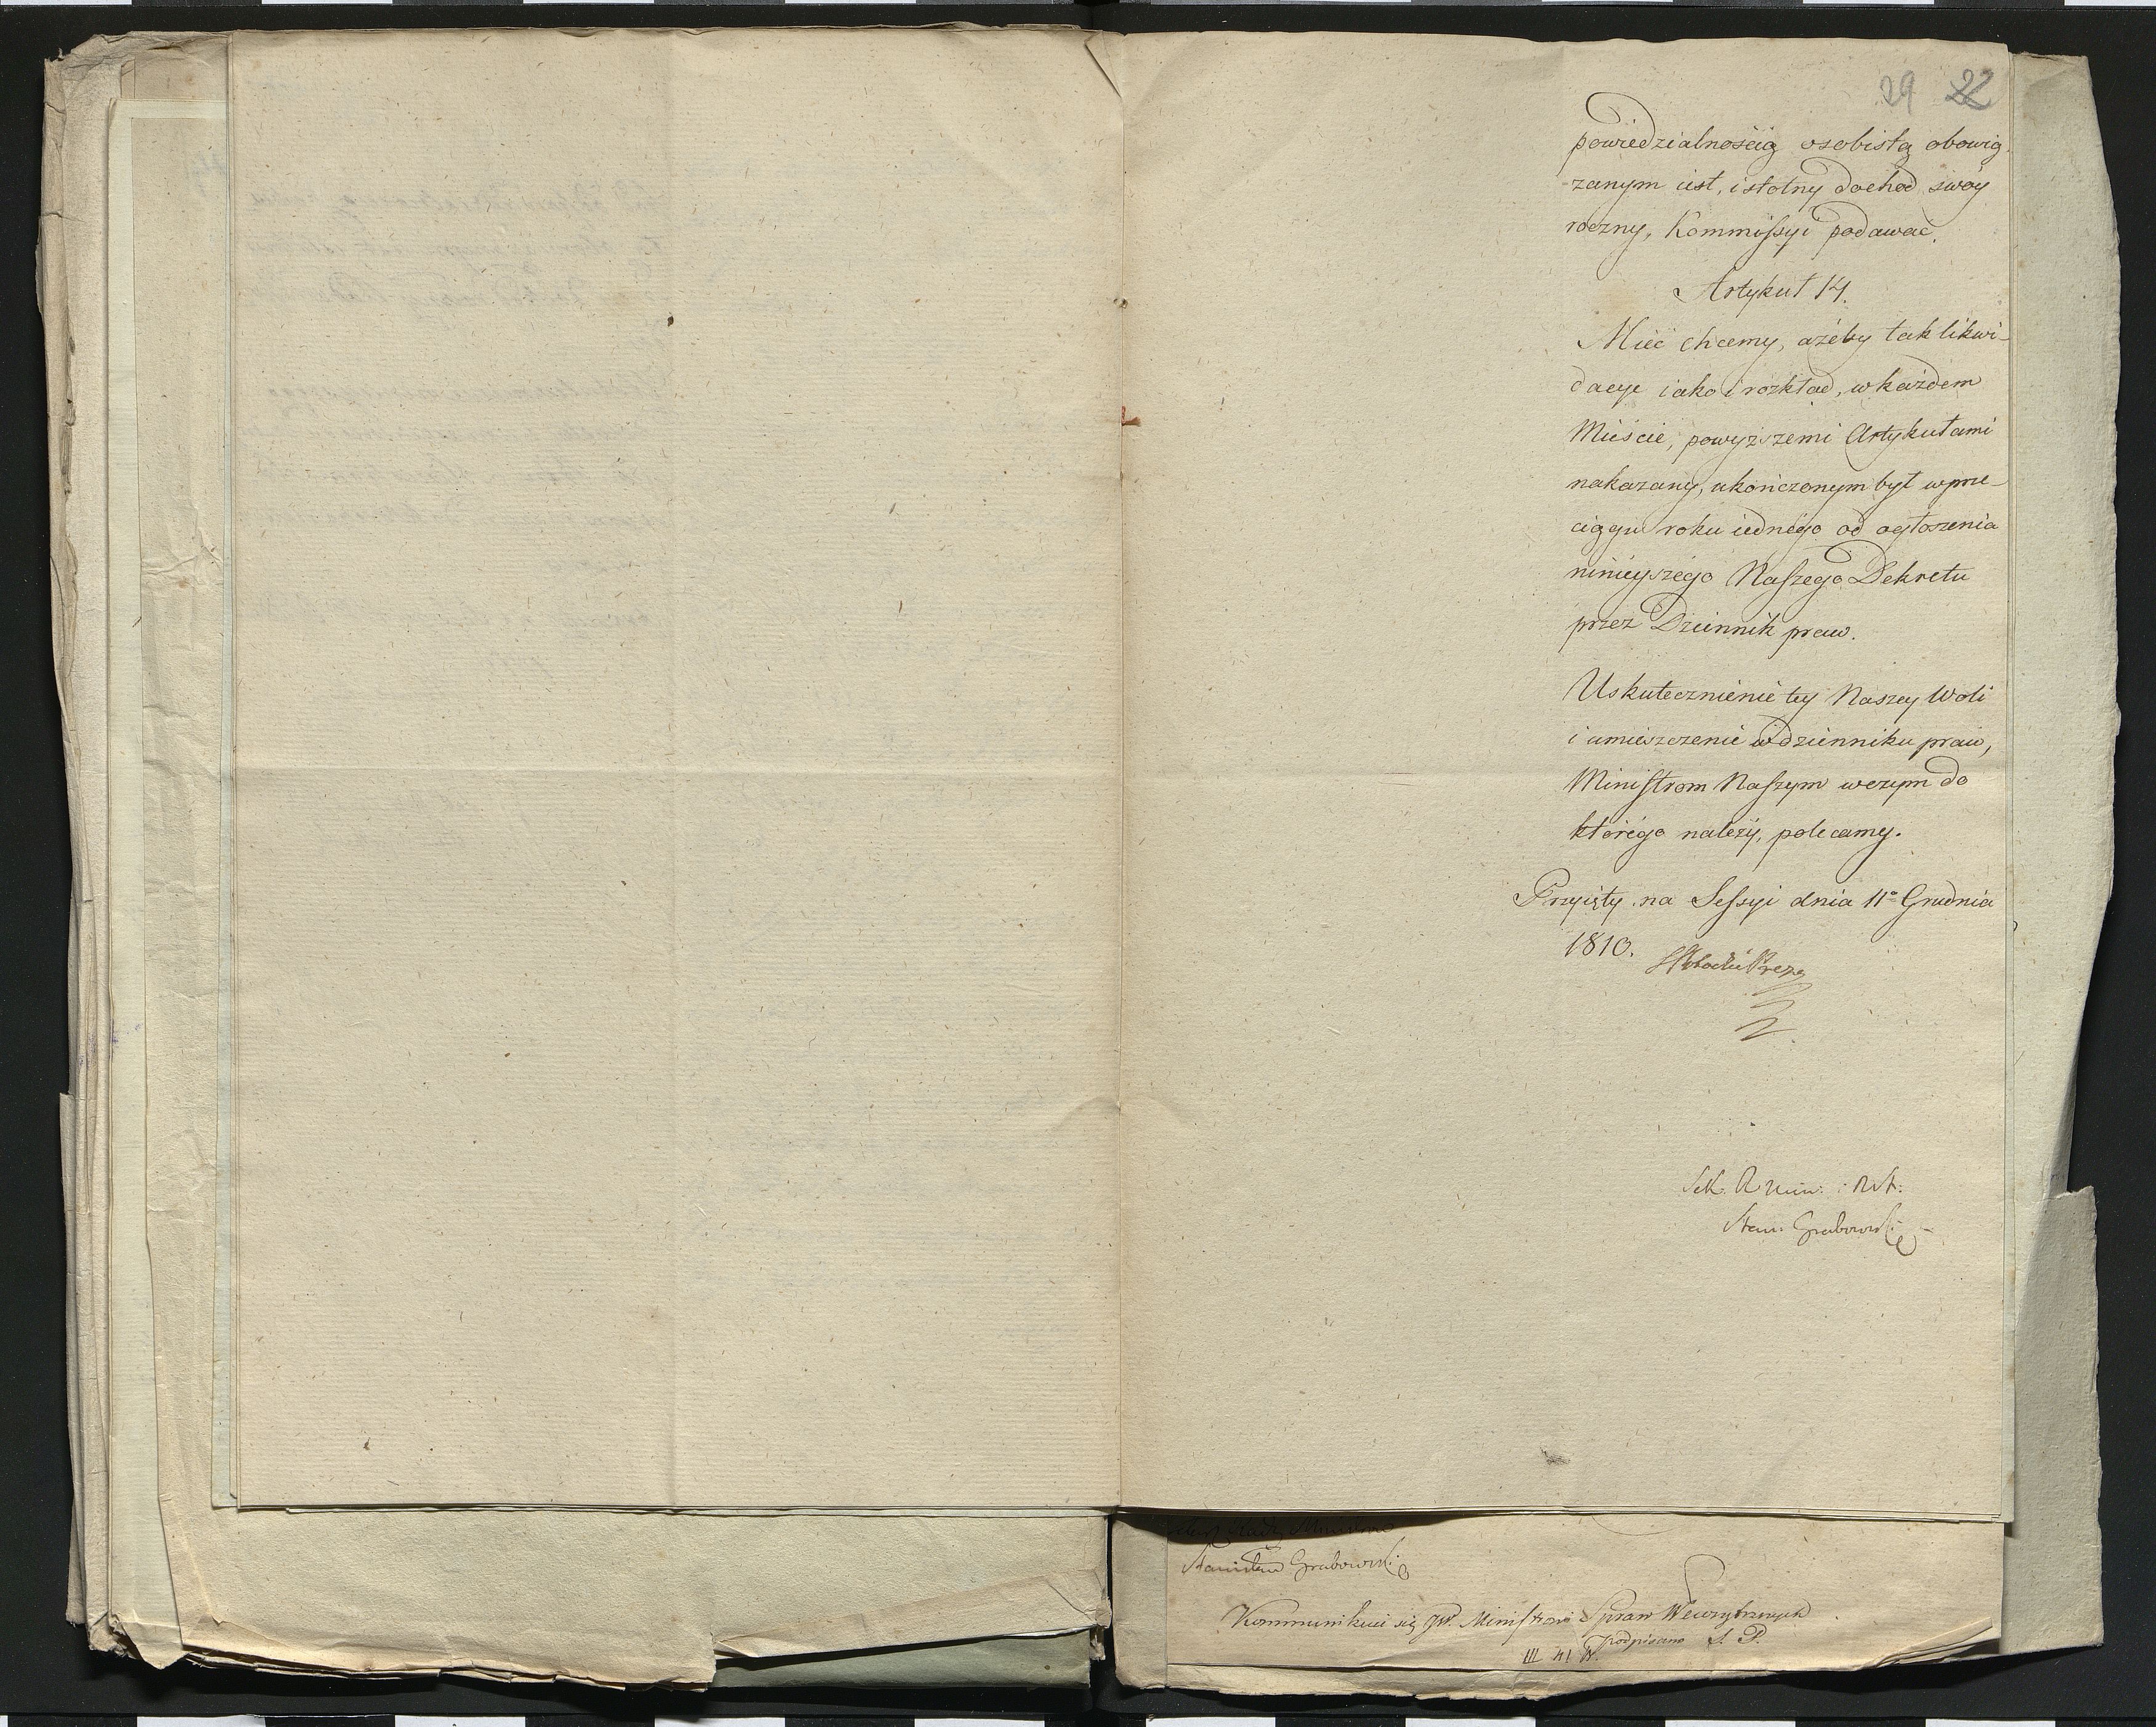 29 22
powiedzialnością osobistą obowią
zanym iest, istotny dochod swóy
roczny, Kommissyi podawać.
Artykuł 14.
Mieć chcemy, ażeby tak likwi-
dacye iako i rozkład, w każdem
Mieście, powyższemi Artykułami
nakazany, ukończonym był w prze-
ciągu roku iednégo od ogłoszenia
ninieyszégo Naszego Dekretu
przez Dziennik praw.
Uskutecznienie tey Naszey Woli
i umieszczenie w dzienniku praw,
Ministrom Naszym w czym do
którégo należy, polecamy.
Przyięty na Sessyi dnia 11º Grudnia
1810. Prez
Sek. R. Min: i Rst:
Stan: Grabowski
Sek Rady Ministrów
Stanisław Grabowski
Kommunikuie się JW. Ministrowi Spraw Wewnętrznych
podpisano S. P.
III 41 W.